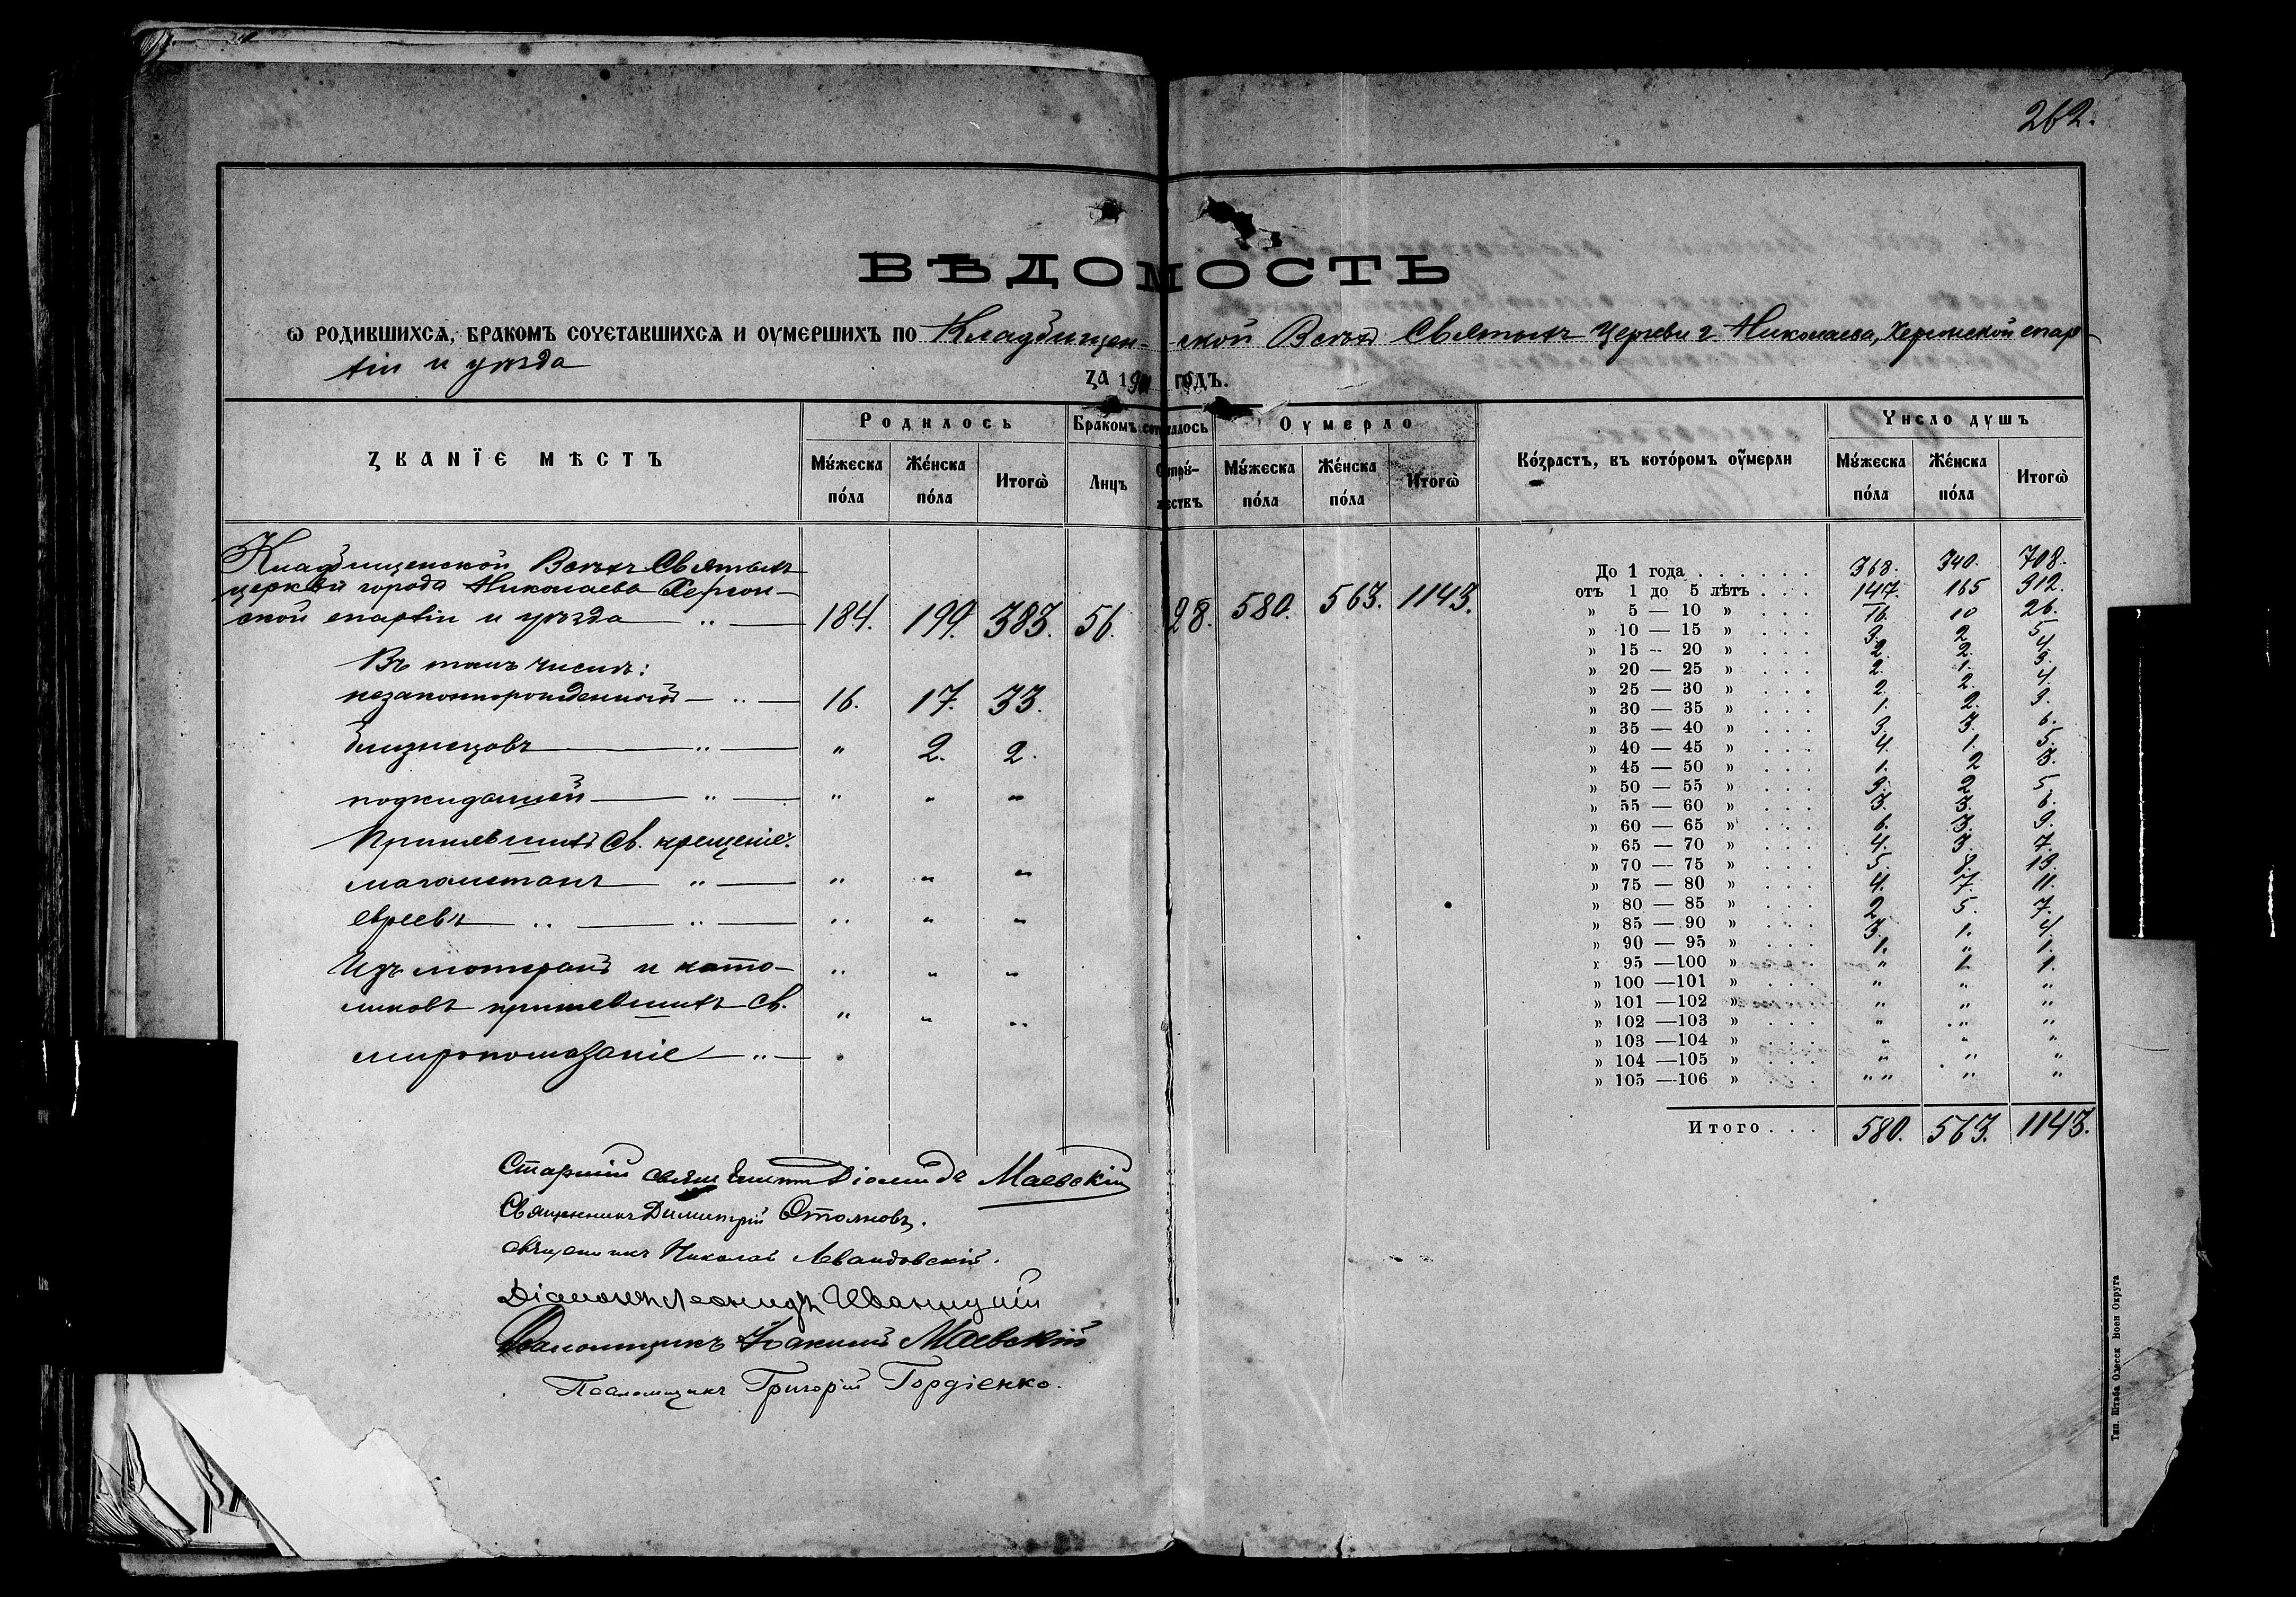 262.
ВѢДОМОСТЬ
Ѡ РОДИВШИХСѦ, БРАКОМЪ СОЧЕТАВШИХСѦ И ОУМЕРШИХЪ ПО Кладбищен-ской Всѣхъ Святыхъ Церкви г. Николаева, Херсонской епар-
хіи и уѣзда
ЗА 19 ГОДЪ.
ЗВАНІЕ МѢСТЪ
Родилось
Бракомъ сочеталось
Оумерло
Возрастъ, въ которомъ оумерли
Число душъ
Мужеска пола
Женска пола
Итогѡ
Лицъ
Супружествъ
Мужеска пола
Женска пола
Итогѡ
Мужеска пола
Женска пола
Итогѡ
Кладбищенской Всѣхъ Святыхъ
церкви города Николаева Херсон-
ской епархіи и уѣзда — „ — 184. 199. 383. 56. 28. 580. 563. 1143.
Въ томъ числѣ:
незаконнорожденныхъ — „ — 16. 17. 33.
близнецовъ — „ — „ 2. 2.
подкидышей — „ — „ „ „
Принявшихъ Св. крещеніе:
магометанъ — „ — „ „ „
евреевъ — „ — „ — „ „ „
Изъ лютеранъ и като- „ „ „
ликовъ принявшихъ Св. „ „ „
миропомазаніе — „ —
До 1 года . . . . . . 368. 340. 708.
отъ 1 до 5 лѣтъ . . . 147. 165 312.
» 5 — 10 » . . . 16. 10 26.
» 10 — 15 » . . . 3. 2. 5.
» 15 — 20 » . . . 2. 2. 4.
» 20 — 25 » . . . 2. 1. 3.
» 25 — 30 » . . . 2. 2. 4.
» 30 — 35 » . . . 1. 2. 3.
» 35 — 40 » . . . 3. 3. 6.
» 40 — 45 » . . . 4. 1. 5.
» 45 — 50 » . . . 1. 2 3.
» 50 — 55 » . . . 3. 2 5
» 55 — 60 » . . . 3. 3. 6.
» 60 — 65 » . . . 6. 3. 9.
» 65 — 70 » . . . 4. 3. 7.
» 70 — 75 » . . . 5. 8. 13.
» 75 — 80 » . . . 4. 7. 11.
» 80 — 85 » . . . 2. 5. 7.
» 85 — 90 » . . . 3. 1. 4.
» 90 — 95 » . . . 1. „ 1.
» 95 —100 » . . . „ 1 1.
» 100 —101 » . . . „ „ „
» 101 —102 » . . . „ „ „
» 102 —103 » . . . „ „ „
» 103 —104 » . . . „ „ „
» 104 —105 » . . . „ „ „
» 105 —106 » . . . „ „ „ „
Итого . . . 580. 563. 1143.
Старшій священникъ Діомидъ Маевскій
Священникъ Димитрій Стояновъ.
священникъ Николай Левандовскій.
Діаконъ Леонидъ Иваницкій
Псаломщикъ Іоакимъ Маевскій
Псаломщикъ Григорій Гордіенко.
Тип. Штаба Одесск Воен Округа